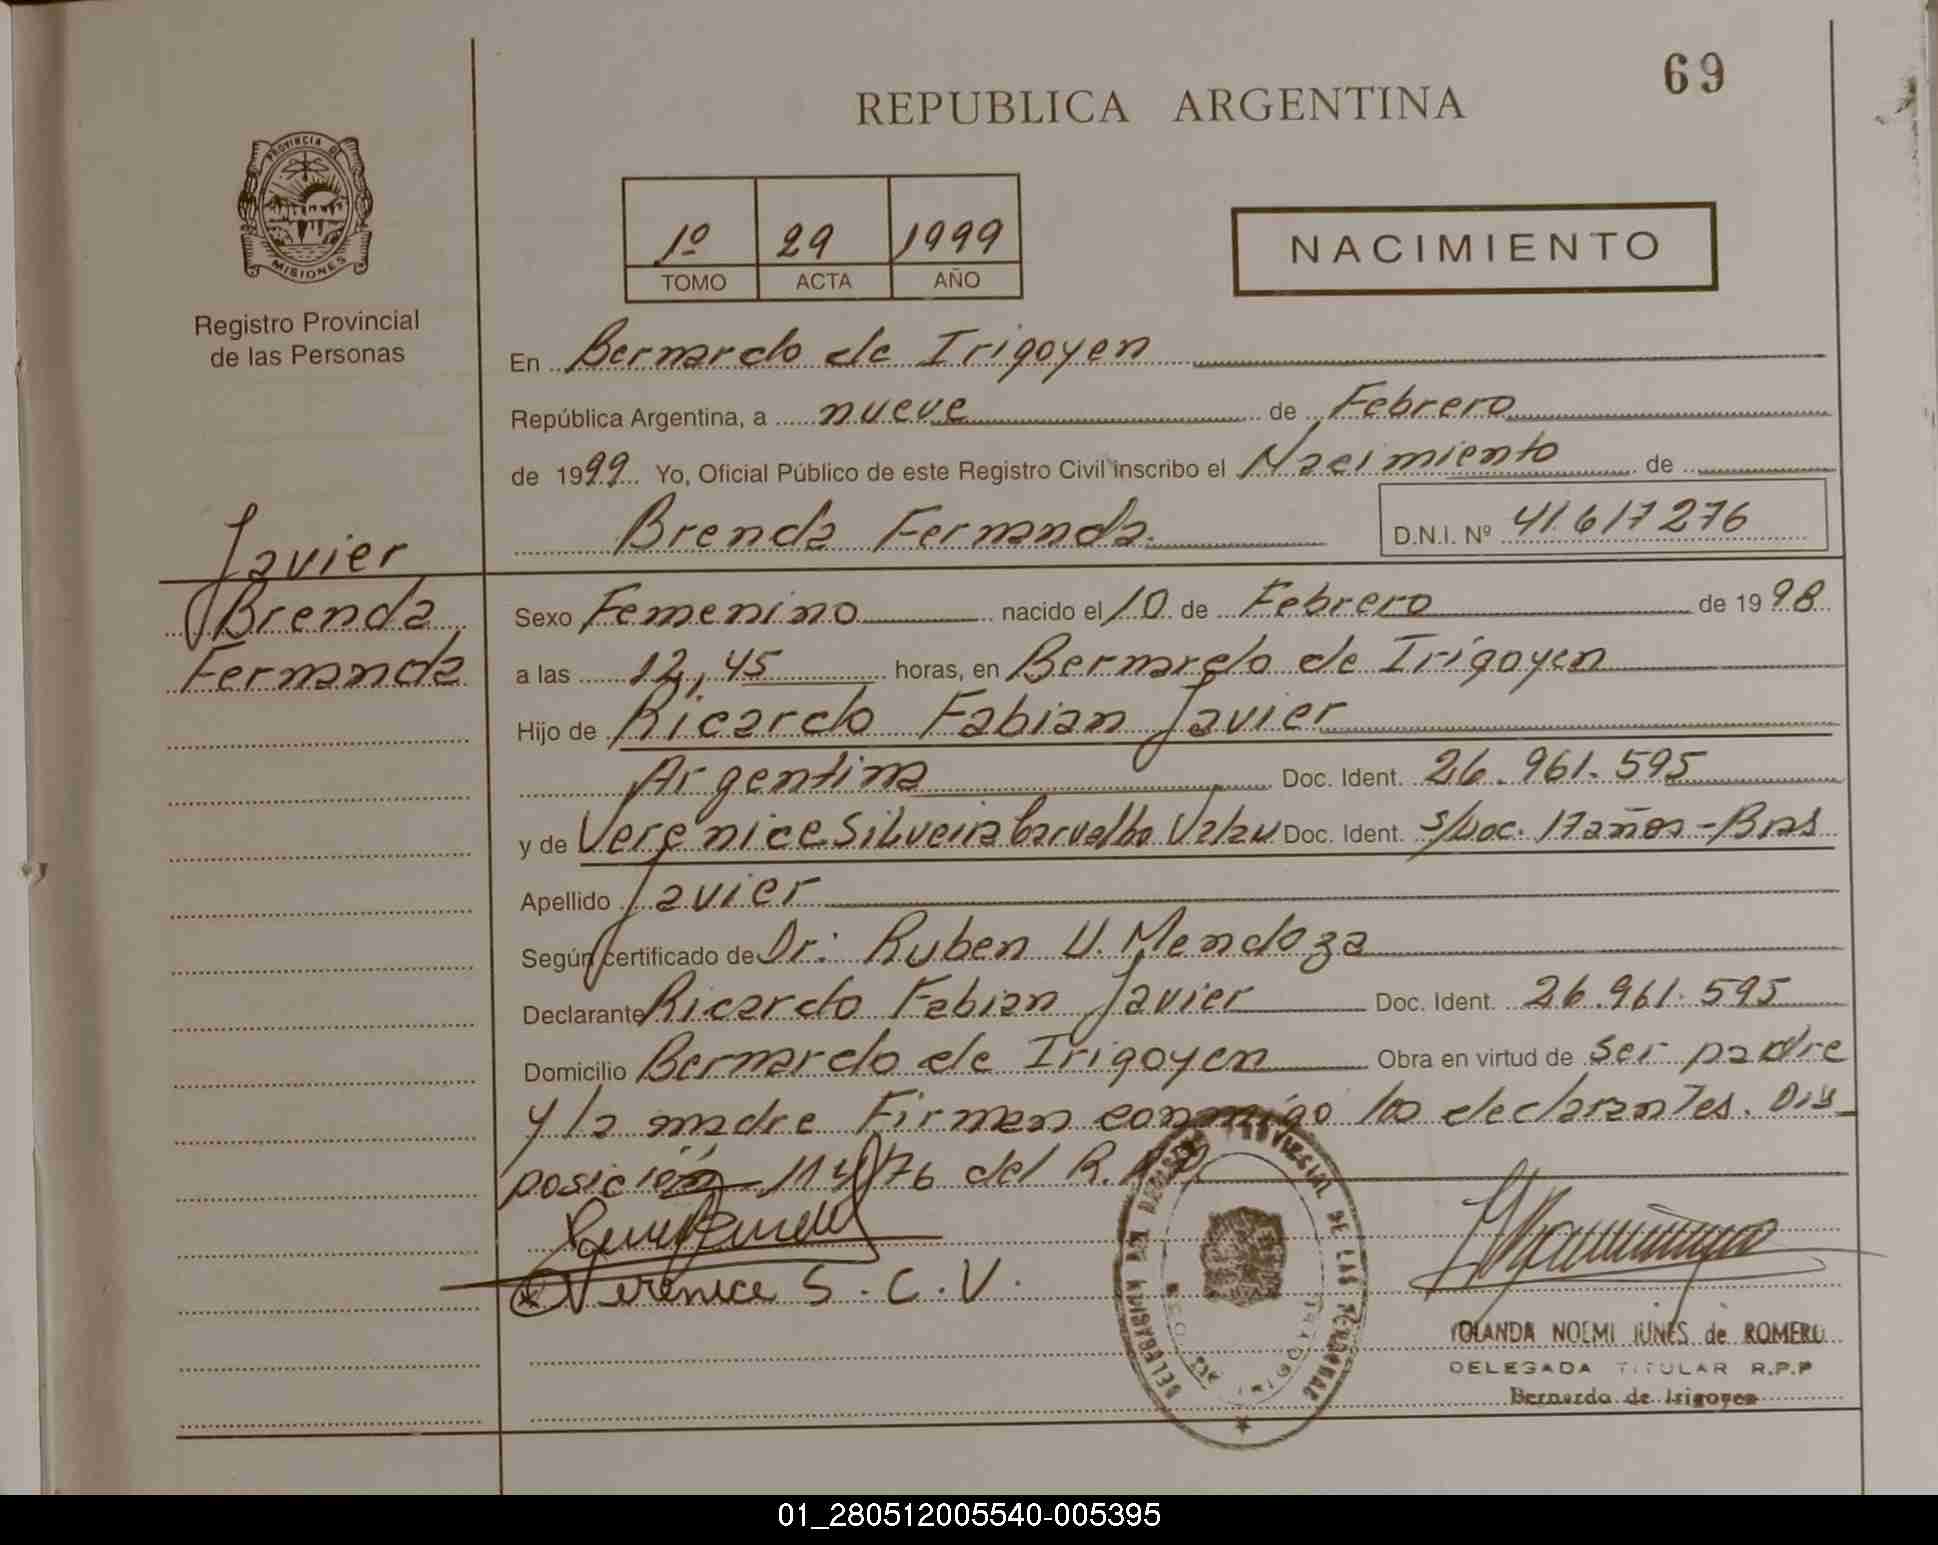 69
REPUBLICA ARGENTINA
PROVINCIA DE
MISIONES
Registro Provincial
de las Personas
1º 29 1999
TOMO ACTA AÑO
NACIMIENTO
En Bernardo de Irigoyen
República Argentina, a nueve de Febrero
de 1999 Yo, Oficial Público de este Registro Civil inscribo el Nacimiento de
Brenda Fernanda. D.N.I. Nº 41.617276
Javier
Brenda
Fernanda
Sexo Femenino nacido el 10 de Febrero de 1998
a las 12,45 horas, en Bernardo de Irigoyen
Hijo de Ricardo Fabian Javier
Argentina Doc. Ident. 26.961.595
y de Verenice Silveira Carvalho Doc. Ident. s/Doc. 17 años - Bras
Apellido Javier
Según certificado de Dr: Ruben U. Mendoza
Declarante Ricardo Fabian Javier Doc. Ident. 26.961.595
Domicilio Bernardo de Irigoyen Obra en virtud de ser padre
y la madre Firman conmigo los declarantes. Dis
posición 114/76 del R.P.P.
Verenice S. C. V.
YOLANDA NOEMI IUNES de ROMERO
DELEGADA TITULAR R.P.P
Bernardo de Irigoyen
01_280512005540-005395